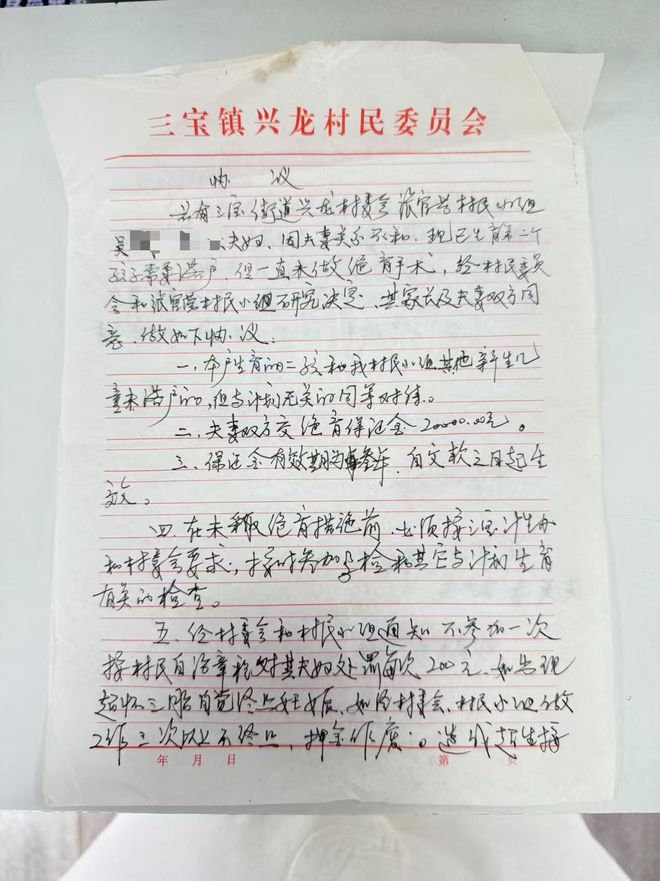 三宝镇兴龙村民委员会
协 议
兹有三宝街道兴龙村委会派官营村民小组
吴 夫妇,因夫妻关系不和,现已生育第二个
孩子需要落户,但一直未做绝育手术,经村民委员
会和派官营村民小组研究决定,其家长及夫妻双方同
意,做如下协议:
一、本户生育的二孩和我村民小组其他新生儿
童未落户的,但与计划无关的同等对待。
二、夫妻双方交绝育保证金20000.00元。
三、保证金有效期为叁年,自交款之日起生
效。
四、在未采取绝育措施前,必须按三宝计生办
和村委会要求,按时参加孕检和其它与计划生育
有关的检查。
五、经村委会和村民小组通知不参加一次
按村民自治章程对其夫妇处罚每次200元,如出现
超怀三胎自觉终止妊娠,如经村委会、村民小组做
工作三次以上不终止,押金作废。造成超生按
年 月 日 第 页